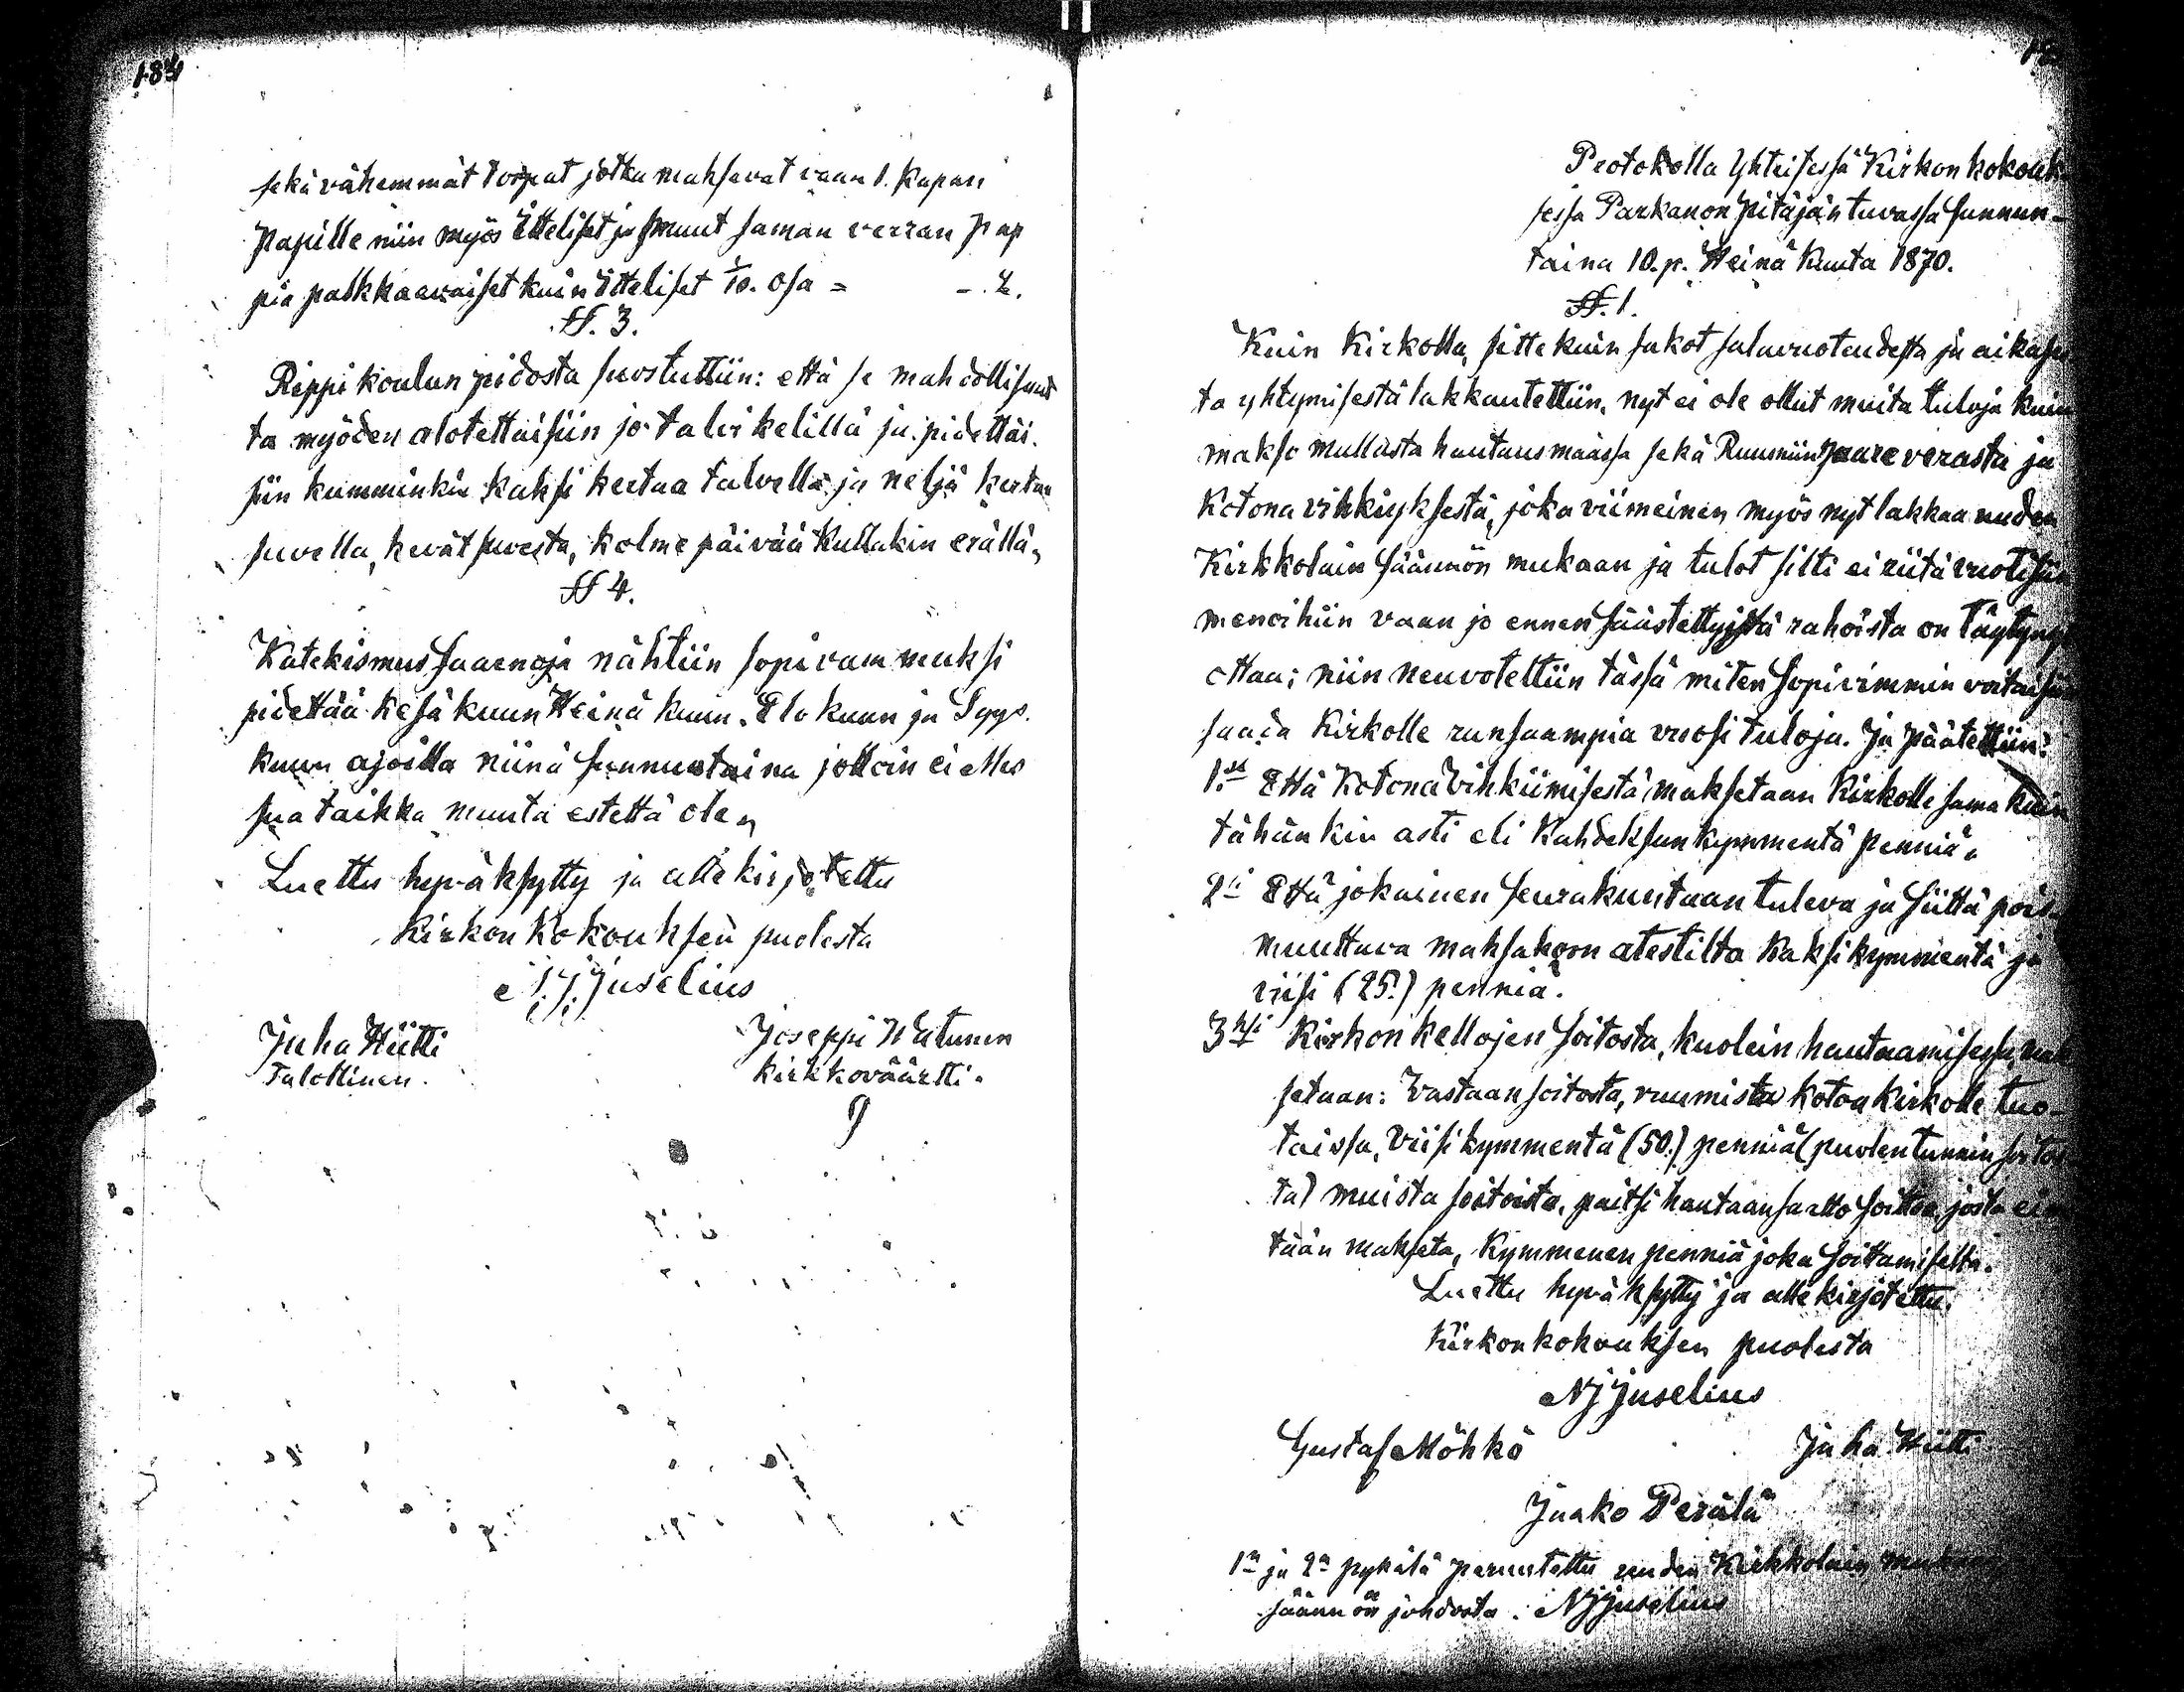 184
sekä vähemmät torpat jotka maksavat vaan 1. Kapan
papille niin myös Itteliset ja muut saman verran pap
pia palkkaavaiset kuin Itteliset 1/10. osa = -. 2.
§§. 3.
Rippikoulun pidosta suostuttiin: että se mahdollisuut
ta myöden alotettaisiin jo talvikelillä ja pidettäi.
siin kumminkin kaksi kertaa talvella ja neljä kertaa
suvella, kevät suvesta, kolme päivää kullakin erällä,
§§ 4.
Katekismus saarnoja nähtiin sopivammaksi
pidettää kesäkuun Heinäkuun. Elokuun ja Syys.
kuun ajoilla niinä sunnuntaina jolloin ei Mes
sua taikka muuta estettä ole,
Luettu hyväksytty ja allekirjotettu
Kirkon Kokouksen puolesta
N J Juselius
Juha Hiitti
Talollinen.
Joseppi Watunen
Kirkkoväärtti.
Protokolla Yhteisessä Kirkon kokouk
sessa Parkanon Pitäjäntuvassa sunnun-
taina 10. p. Heinäkuuta 1870.
§§. 1.
Kuin Kirkolla, sittekuin sakot salavuoteudesta ja aikaseu
ta yhtymisestä lakkautettiin, nyt ei ole ollut muita tuloja kuin
makso mullasta hautausmaassa sekä Ruumiin paareverasta ja
Kotona vihkiyksestä, joka viimeinen myös nyt lakkaa uuden
Kirkkolain säännön mukaan ja tulot silti ei riitä vuotisiin
menoihiin vaan jo ennen säästettyistä rahoista on täytynyt
ottaa; niin neuvoteltiin tässä miten sopivimmin voitaisiin
saada Kirkolle runsaampia vuosi tuloja. Ja päätettiin:
1.si Että Kotona Vihkiimisestä maksetaan Kirkolle sama kuin
tähänkin asti eli Kahdeksankymmentä penniä.
2.si Että jokainen seurakuntaan tuleva ja siittä pois
muuttava maksakoon atestilta Kaksikymmentä ja
viisi (25.) penniä.
3.ksi Kirkon kellojen soitosta, kuolein hautaamisessa, mak
setaan: Vastaansoitosta, ruumista kotoa kirkolle tuo-
taissa, Viisikymmentä (50.) penniä (puolentunnin soitos
ta) muista soitoista, paitsi hautaansaatto soittoa, josta ei
tään makseta, Kymmenen penniä joka soittamiselta.
Luettu hyväksytty ja allekirjotettu.
Kirkonkokouksen puolesta
N J Juselius
Gustaf Möhkö
Juha Hiitti
Jaako Perälä
1n ja 2n pykälä peruutettu uuden Kirkkolain
säännön johdosta. N J Juselius